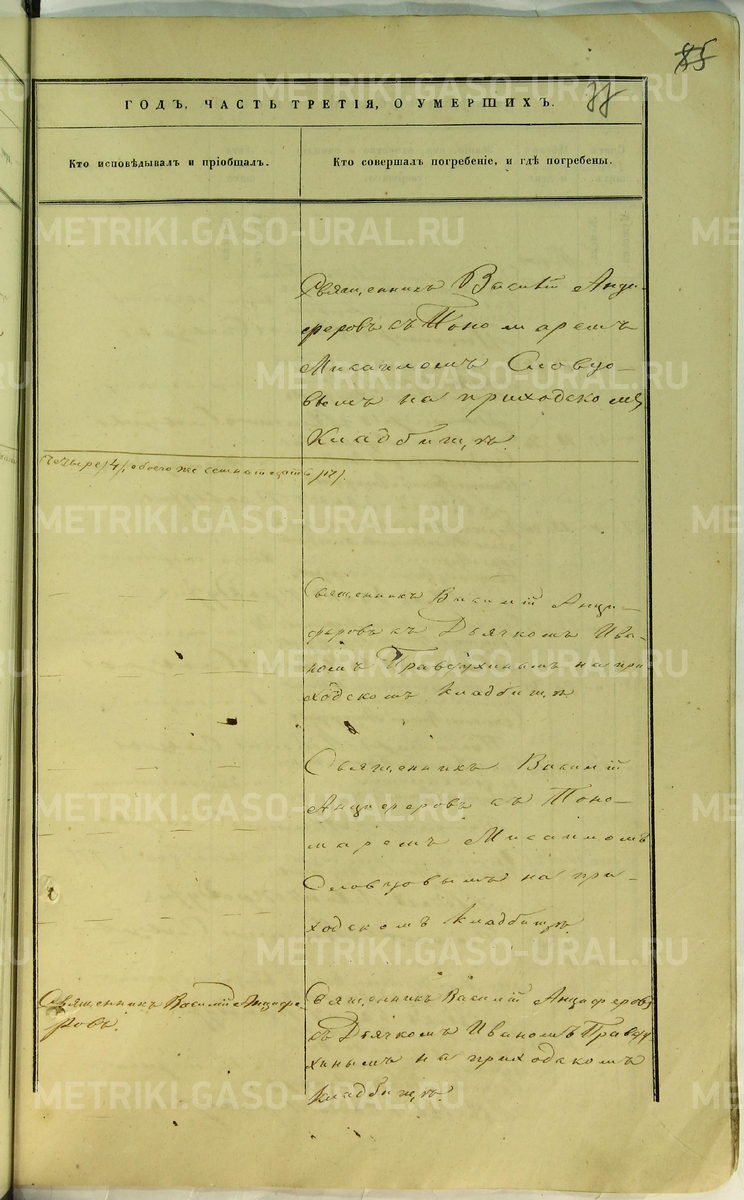 85
77
ГОДЪ, ЧАСТЬ ТРЕТІЯ, О УМЕРШИХЪ.
Кто исповѣдывалъ и пріобщалъ.
Кто совершалъ погребеніе, и гдѣ погребены.
Священникъ Василій Анци-
феровъ съ Пономаремъ
Михаиломъ Словцо-
вымъ на приходскомъ
кладбищѣ.
четыре /4/, обоего же семнатцать /17/.
Священникъ Василій Анци-
феровъ съ Дьячкомъ Ива-
номъ Правдухинымъ на при-
ходскомъ кладбищѣ
Священникъ Василій
Анциферовъ съ Поно-
маремъ Михаиломъ
Словцовымъ на при-
ходскомъ кладбищѣ.
Священникъ Василій Анцифе-
ровъ.
Священникъ Василій Анциферовъ
съ Дьячкомъ Иваномъ Правду-
хинымъ на приходскомъ
кладбищѣ.
METRIKI.GASO-URAL.RU